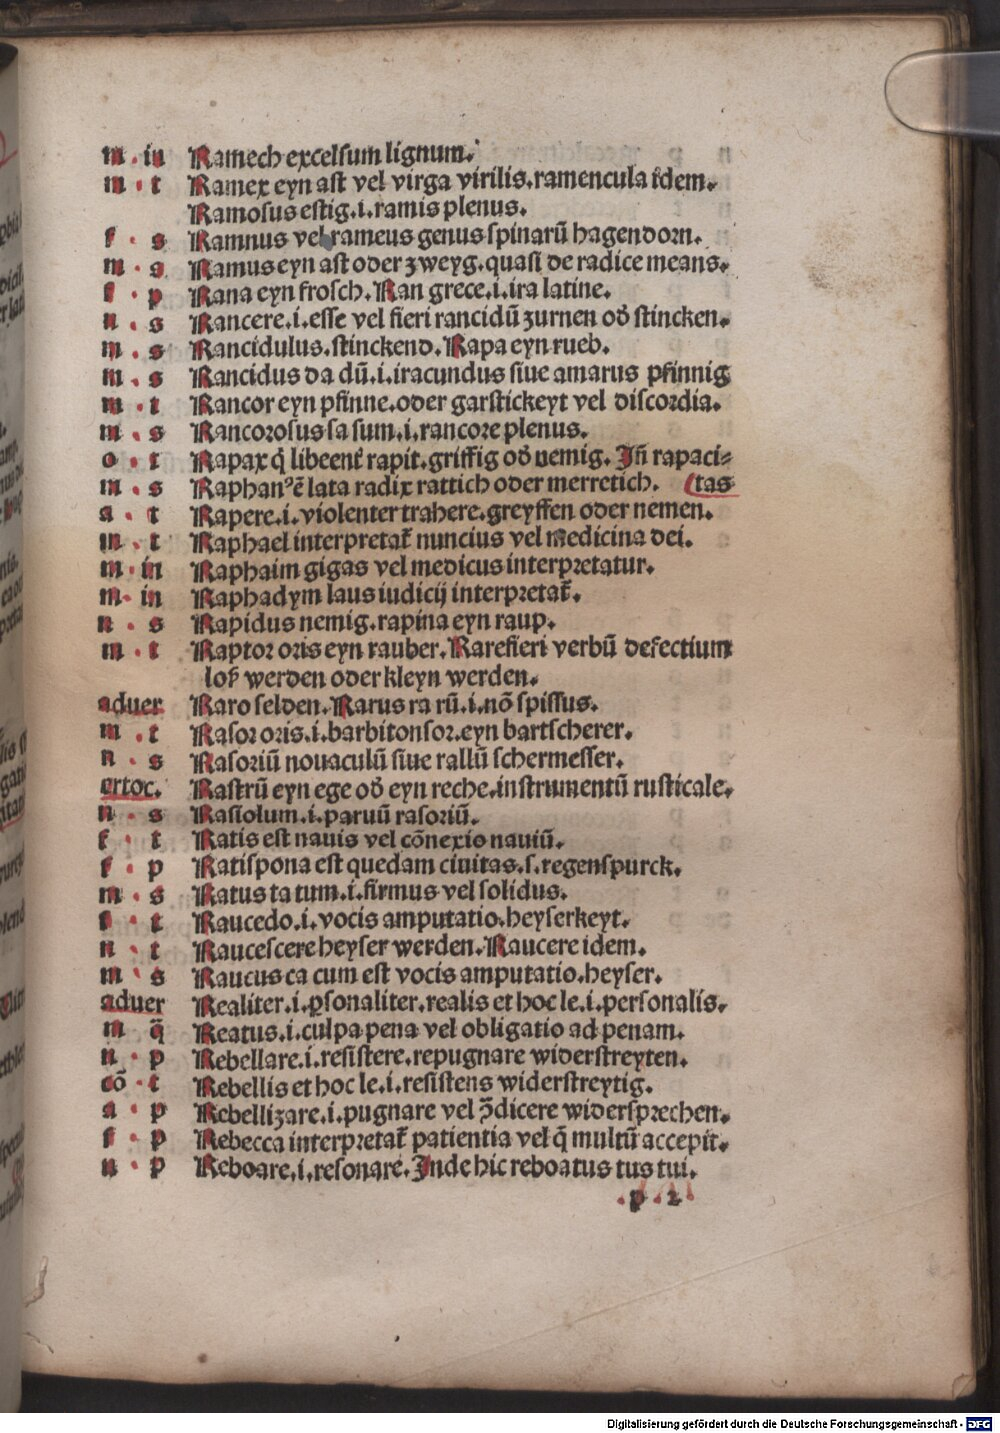 m · in Ramech excelsum lignum.
m · t Ramex eyn ast vel virga virilis.ramencula idem.
Ramosus estig.i.ramis plenus.
f · s Ramnus vel rameus genus spinarū hagendorn.
m · s Ramus eyn ast oder zweyg.quasi de radice means.
f · p Rana eyn frosch. Ran grece.i.ira latine.
n · s Rancere.i.esse vel fieri rancidū zurnen od̕ stincken.
m · s Rancidulus.stinckend. Rapa eyn rueb.
m · s Rancidus da dū.i.iracundus siue amarus pfinnig
m · t Rancor eyn pfinne.oder garstickeyt vel discordia.
m · s Rancorosus sa sum.i.rancore plenus.
o · t Rapax q̇ libeent̕ rapit.griffig od̕ nemig. Jn̄ rapaci⸗
m · s Raphanꝰ ē lata radix rattich oder merretich. (tas
a · t Rapere.i.violenter trahere.greyffen oder nemen.
m · t Raphael interpretat̕ nuncius vel medicina dei.
m · in Raphaim gigas vel medicus interpretatur.
m · in Raphadym laus iudicij interpretat̕.
n · s Rapidus nemig.rapina eyn raup.
m · t Raptor oris eyn rauber. Rarefieri verbū defectium
loß werden oder kleyn werden.
aduer Raro selden. Rarus ra rū.i.nō spissus.
m · t Rasor oris.i.barbitonsor.eyn bartscherer.
n · s Rasoriū nouaculū siue rallū schermesser.
ertoc. Rastrū eyn ege od̕ eyn reche.instrumentū rusticale.
n · s Rasiolum.i.paruū rasoriū.
f · t Ratis est nauis vel cōnexio nauiū.
f · p Ratispona est quedam ciuitas.s.regenspurck.
m · s Ratus ta tum.i.firmus vel solidus.
f · t Raucedo.i.vocis amputatio.heyserkeyt.
n · t Raucescere heyser werden. Raucere idem.
m · s Raucus ca cum est vocis amputatio.heyser.
aduer Realiter.i.ꝑsonaliter.realis et hoc le.i.personalis.
m q̄ Reatus.i.culpa pena vel obligatio ad penam.
n · p Rebellare.i.resistere.repugnare widerstreyten.
cō · t Rebellis et hoc le.i.resistens widerstreytig.
a · p Rebellizare.i.pugnare vel ꝯdicere widersprechen.
f · p Rebecca interpretat̕ patientia vel q̇ multū accepit.
n · p Reboare.i.resonare. Jnde hic reboatus tus tui.
.p.2
Digitalisierung gefördert durch die Deutsche Forschungsgemeinschaft - DFG